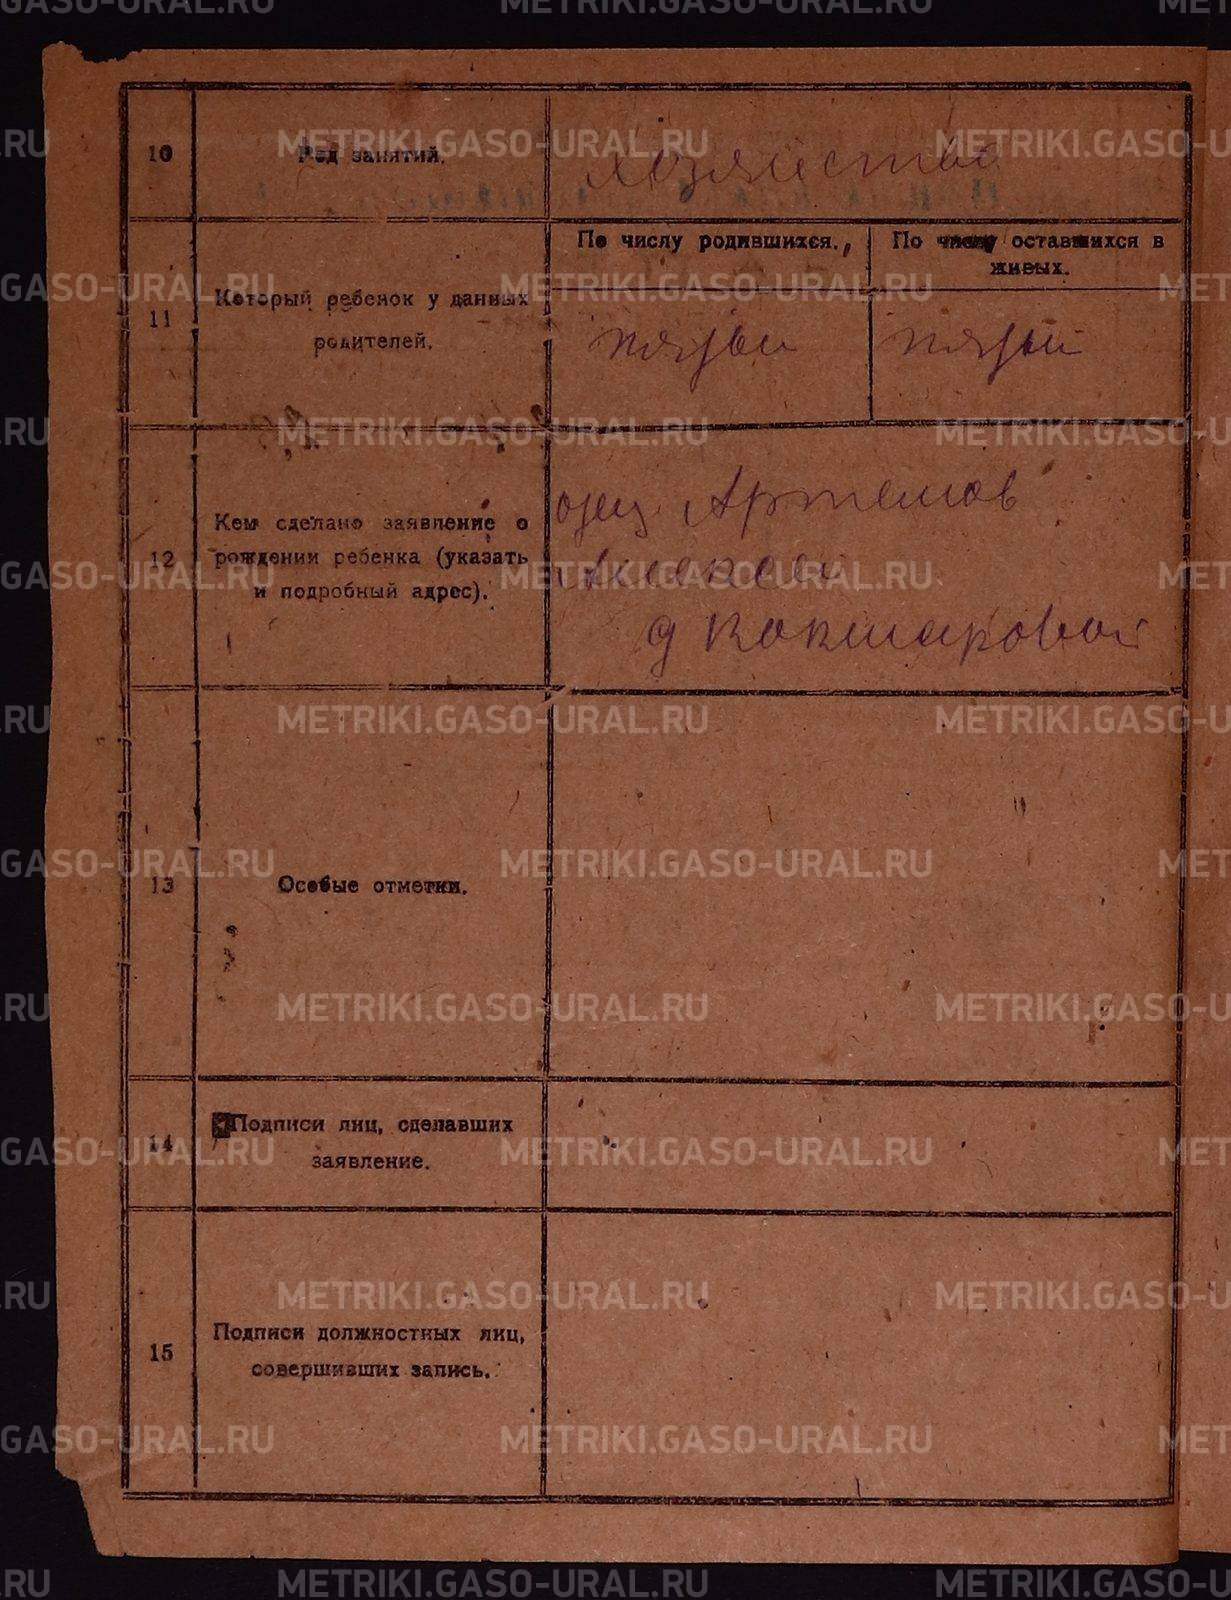 10
Род занятий.
хозяйство
11
Который ребенок у данных
родителей.
По числу родившихся.
По числу оставшихся в
живых.
пятый
пятый
12
Кем сделано заявление о
рождении ребенка (указать
и подробный адрес).
отец Артемов
Алексей
д Кокшаровой
13
Особые отметки.
14
Подписи лиц, сделавших
заявление.
15
Подписи должностных лиц,
совершивших запись.
METRIKI.GASO-URAL.RU